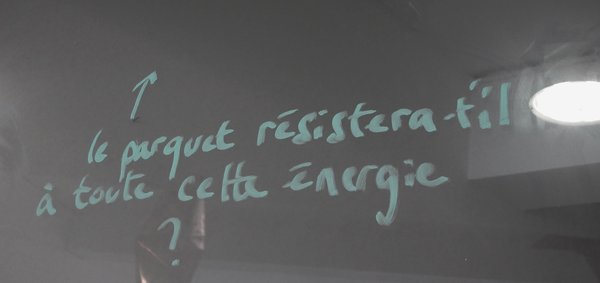 le parquet résistera-t'il
à toute cette énergie
?